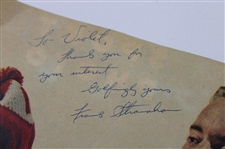 To Violet,
Thank you for
your interest
Golfingly yours
Frank Stranahan